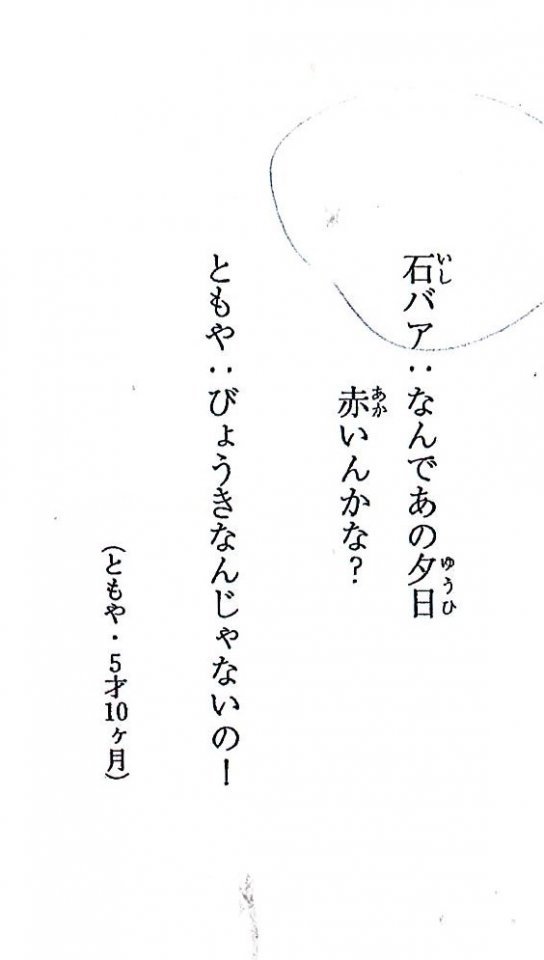 石バア：なんであの夕日
赤いんかな？
ともや：びょうきなんじゃないのー
（ともや・5才10ヶ月）